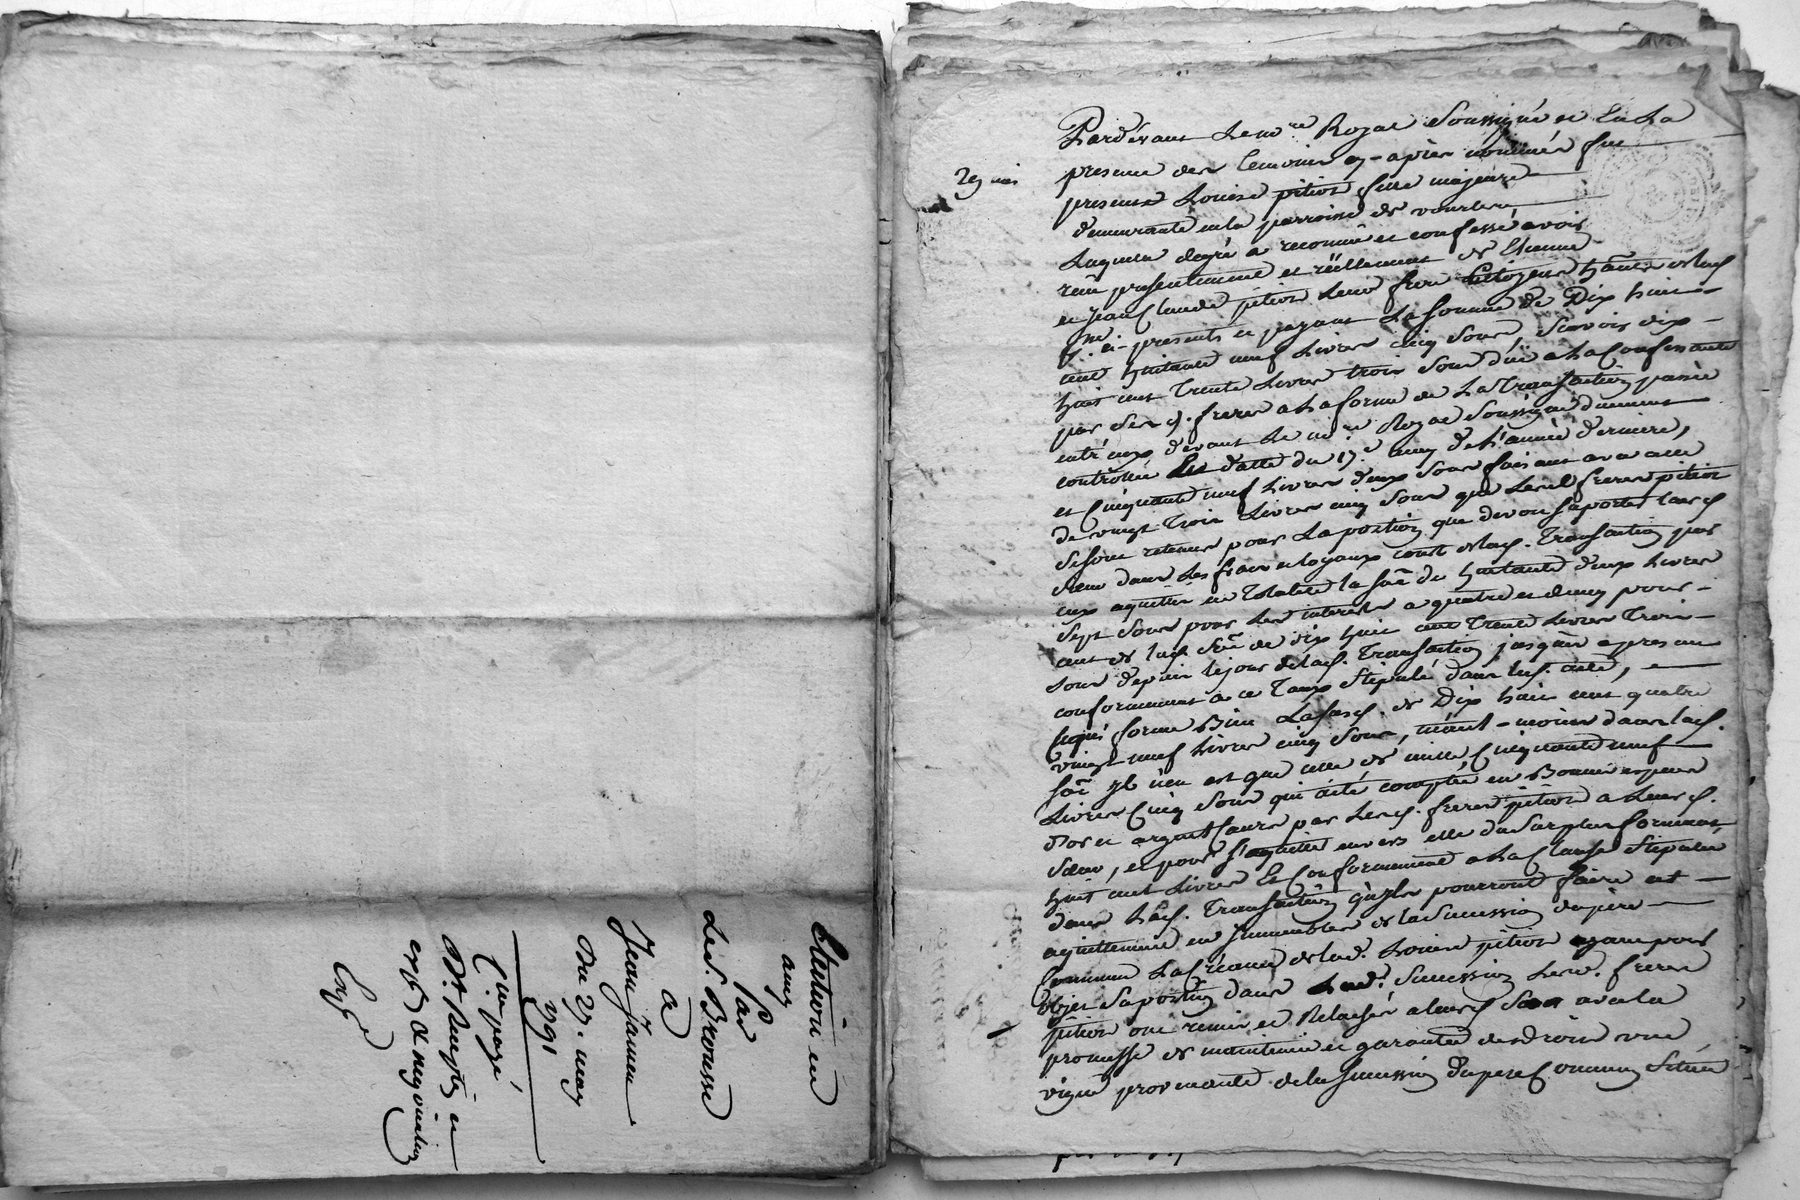 Caution en
par
Led. Brousse
a
Jean Jannen
Du 27. may
1791
Cinq payé
Pardevant Le no.re Royal Soussigné et En La
presence des temoins cy-après nommés fut
29 mai
presente Louise pition fille majeure
demeurante en la parroisse de
Laquelle degré a reconnu et confessé avoir
recu presentement et réëllement de Etienne
et Jean Claude pition Leur frere
ci-presents et payant La Somme de Dix huit
cent huitante neuf Livres cinq Sous, Scavoir dix-
huit cent Trente Livres trois Sous düe a La Confessante
par Ses d. freres a La forme de La Transaction passée
entr'eux devant Le no.re Royal Soussigné duement
controllée datte du 17.e may de L'année derniere,
et Cinquante neuf Livres deux Sous faisant avec celle
de vingt Trois Livres cinq Sous que Lesd. freres pition
Se sont retenus pour La portion que devoit Suporter leurd.
Sœur dans Les frais et loyaux couts de lad. Transaction par
eux aquittés en Totalité la Sôe de huitante deux Livres
Sept Sous pour Les interets a quatre et demy pour-
cent de lad. Sôe de dix huit cent Trente Livres Trois-
Sous depuis le jour de lad. Transaction jusqu'a apresent
conformement a ce Taux Stipulé dans led. acte,
forme Bien La Susd. de Dix huit cent quatre
vingt neuf Livres cinq Sous, néant-moins dans lad.
Sôe yl n'en est que celle de mille Cinquante neuf
Livres Cinq Sous qui a été comptée en Bonnes especes
d'or et argent Cours par Lesd. freres pition a Leurd.
Sœur, et pour S'aquitter envers elle du Surplus formant
huit cent Livres Et Conformement a La Clause Stipulée
dans Lad. Transaction qu'yls pourront faire cet
aquittement en Immeubles de la Succession du pere
Commun La Créance de lad. Louise pition ayant pour
objet Sa portion dans Lad. Succession Lesd. freres
pition ont remis et Relachés a leurd. Sœur avec la
promesse de maintenue et garantie de droit une
vigne provenante de la Succession du pere Commun Située